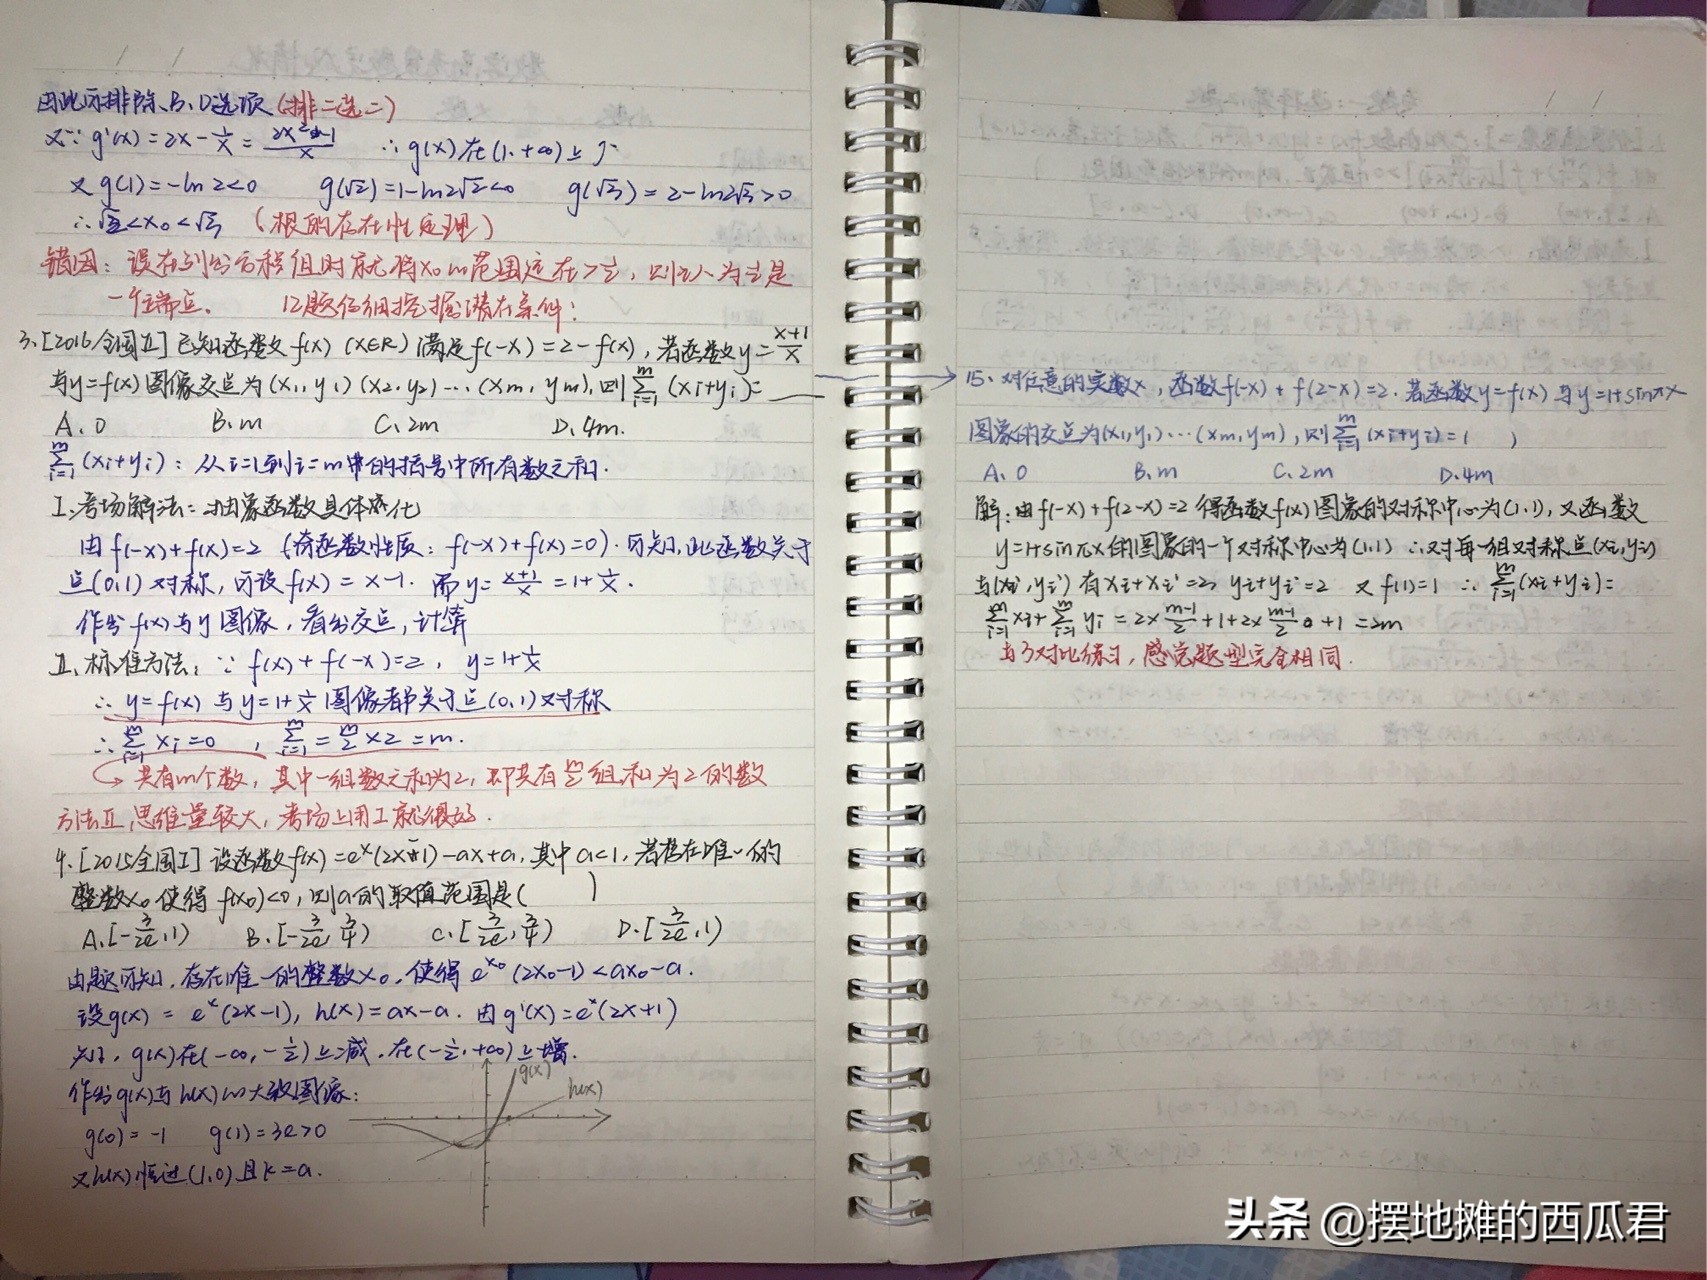 因此可排除B、D选项(排二选二)
又∵g'(x)=2x-1/x=(2x²-1)/x ∴g(x)在(1,+∞)上↗
又g(1)=-ln2<0 g(√2)=1-ln2√2<0 g(√3)=2-ln2√3>0
∴√2<x₀<√3 (根的存在性定理)
错因:误在列出方程组时就将x₀、m范围定在>½,则认为½是
一个端点. 12题仔细挖掘潜在条件!
3.[2016全国Ⅱ]已知函数f(x)(x∈R)满足f(-x)=2-f(x),若函数y=(x+1)/x
与y=f(x)图像交点为(x₁,y₁)(x₂,y₂)…(xm,ym),则∑_{i=1}^{m}(xi+yi)=
A.0 B.m C.2m D.4m.
∑_{i=1}^{m}(xi+yi):从i=1到i=m中的括号中所有数之和.
Ⅰ.考场解法:抽象函数具体化
由f(-x)+f(x)=2(奇函数性质:f(-x)+f(x)=0).可知,此函数关于
点(0,1)对称,可设f(x)=x-1.而y=(x+1)/x=1+1/x.
作出f(x)与y图像,看出交点,计算
Ⅱ.标准方法:∵f(x)+f(-x)=2,y=1+1/x
∴y=f(x)与y=1+1/x图像都关于点(0,1)对称
∴∑_{i=1}^{m}xi=0,∑_{i=1}^{m}=m/2×2=m.
→共有m个数,其中一组数之和为2,即共有m/2组和为2的数
方法Ⅱ思维量较大,考场上用Ⅰ就很好.
4.[2015全国Ⅰ]设函数f(x)=eˣ(2x-1)-ax+a,其中a<1,若存在唯一的
整数x₀使得f(x₀)<0,则a的取值范围是( )
A.[-3/2e,1) B.[-3/2e,3/4) C.[3/2e,3/4) D.[3/2e,1)
由题可知,存在唯一的整数x₀,使得e^{x₀}(2x₀-1)<ax₀-a.
设g(x)=eˣ(2x-1),h(x)=ax-a.因g'(x)=eˣ(2x+1)
知,g(x)在(-∞,-½)上减,在(-½,+∞)上增.
作出g(x)与h(x)的大致图像:
g(x)
h(x)
g(0)=-1 g(1)=3e>0
又h(x)恒过(1,0)且k=a.
15.对任意的实数x,函数f(-x)+f(2-x)=2.若函数y=f(x)与y=1+sinπx
图象的交点为(x₁,y₁)…(xm,ym),则∑_{i=1}^{m}(xi+yi)=( )
A.0 B.m C.2m D.4m
解:由f(-x)+f(2-x)=2得函数f(x)图象的对称中心为(1,1),又函数
y=1+sinπx的图象的一个对称中心为(1,1)∴对每一组对称点(xi,yi)
与(xi',yi')有xi+xi'=2,yi+yi'=2 又f(1)=1 ∴∑_{i=1}^{m}(xi+yi)=
∑_{i=1}^{m}xi+∑_{i=1}^{m}yi=2×(m-1)/2+1+2×(m-1)/2+1=2m
与3对比练习,感觉题型完全相同.
头条 @摆地摊的西瓜君